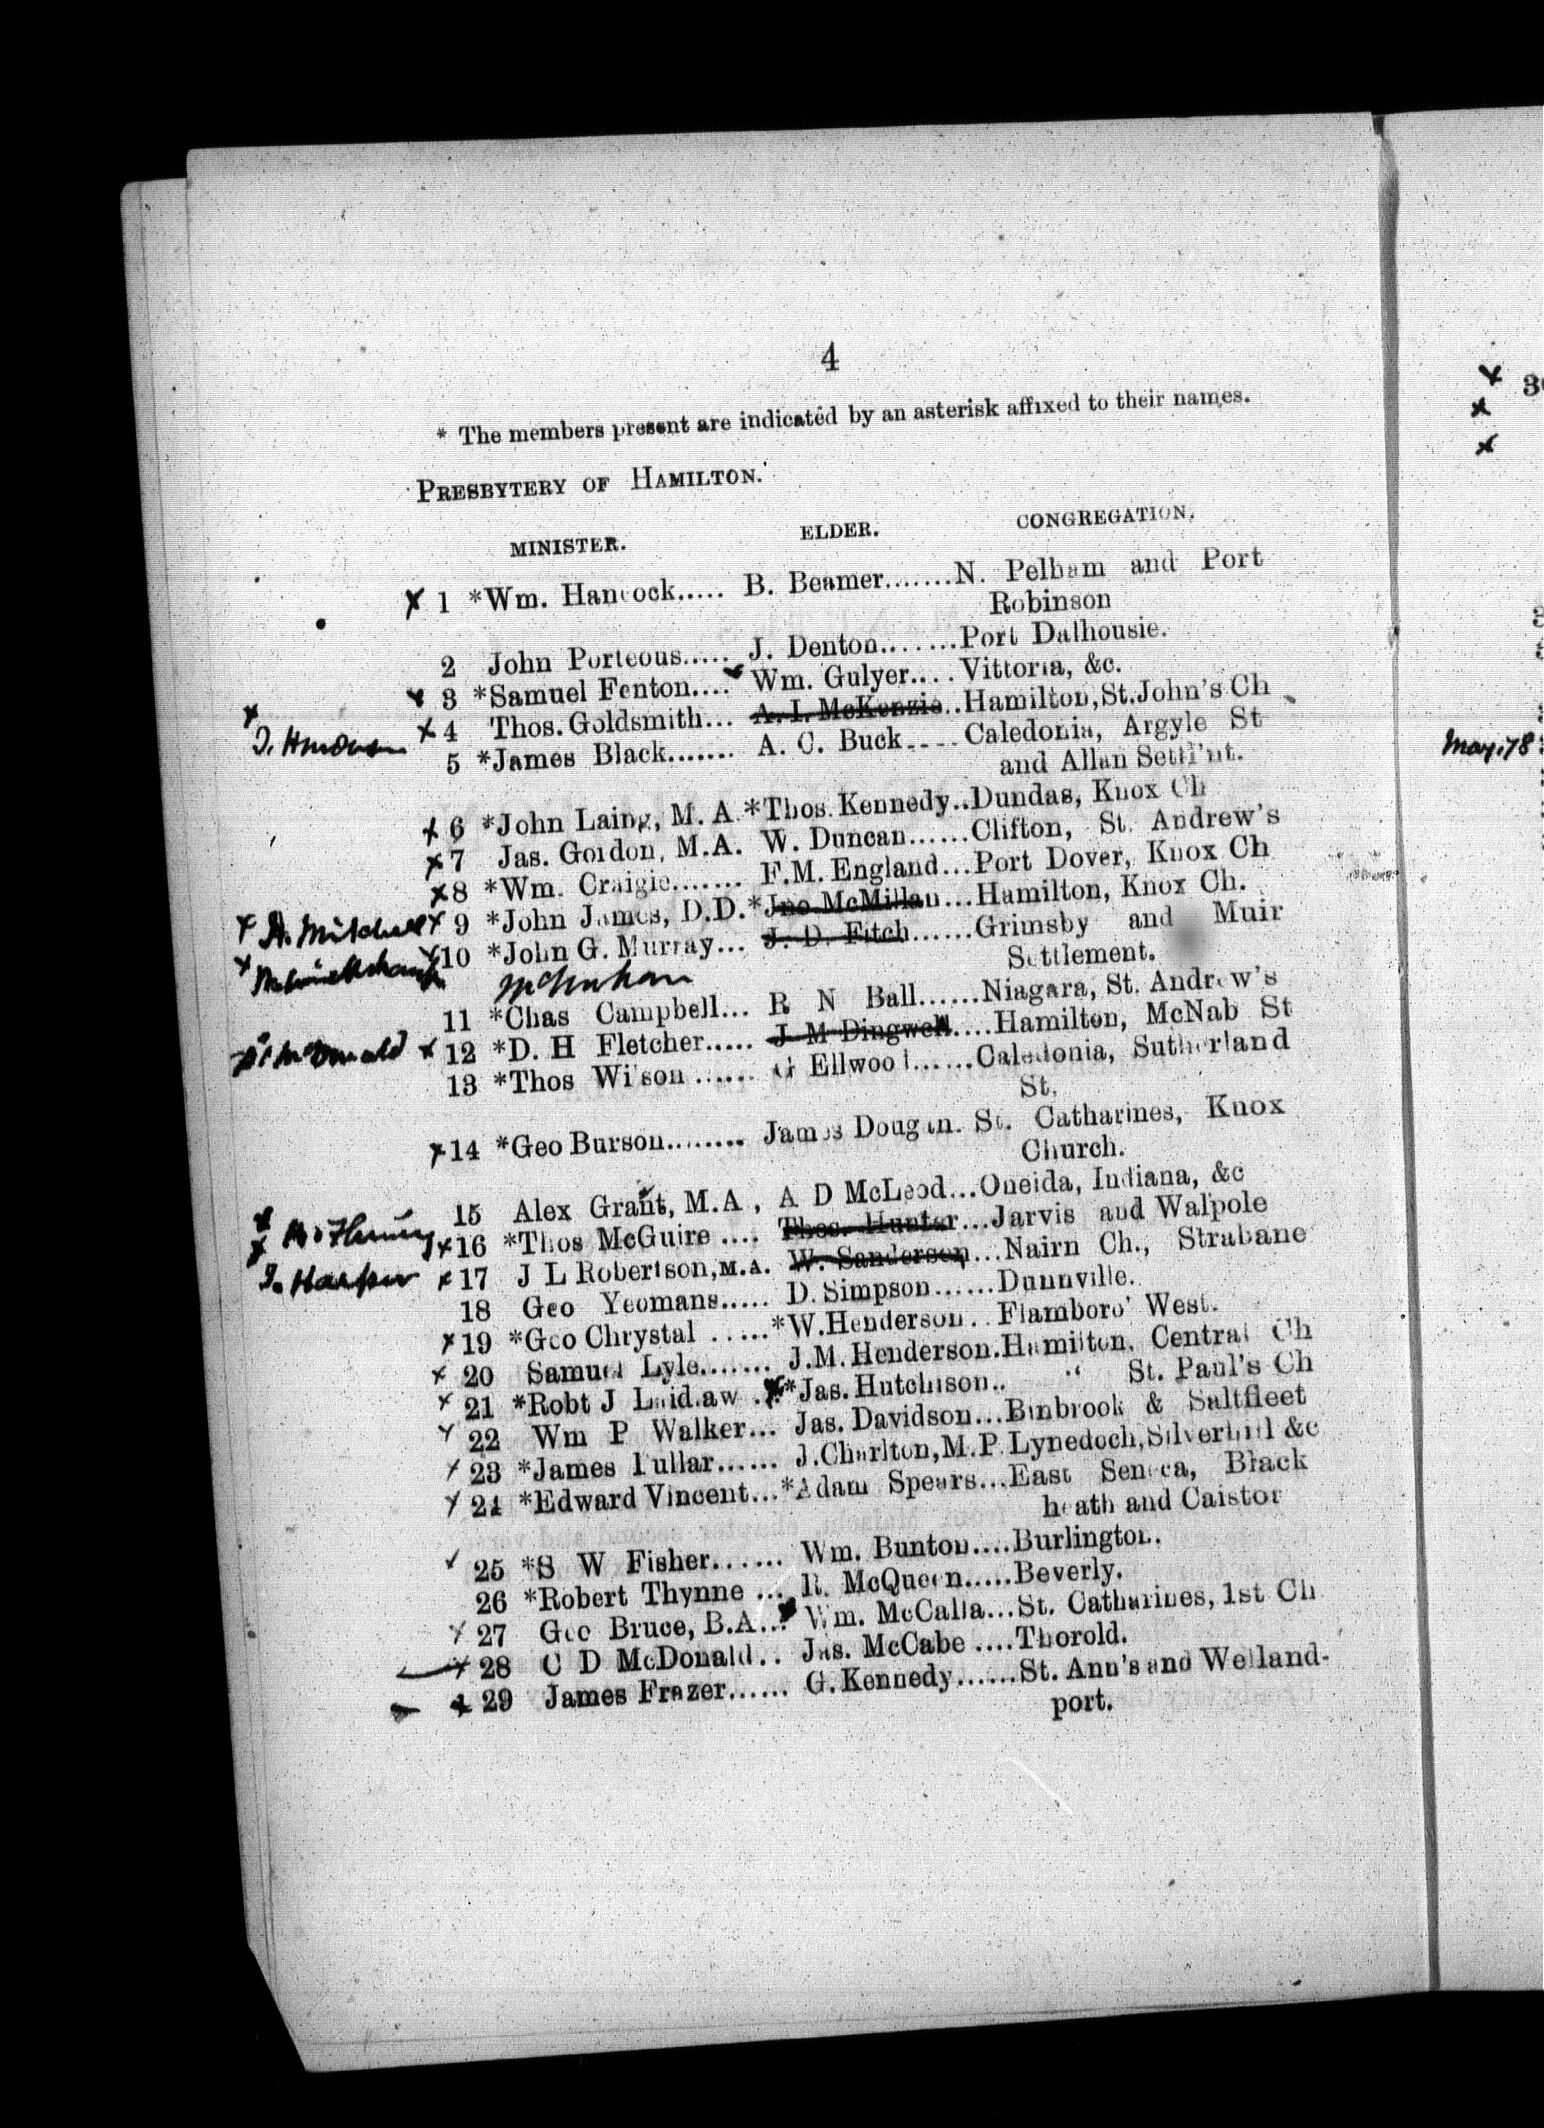 4
* The members present are indicated by an asterisk affixed to their names.
PRESBYTERY OF HAMILTON.
MINISTER. ELDER. CONGREGATION.
x 1 *Wm. Hancock..... B. Beamer.......N. Pelham and Port
Robinson
2 John Porteous..... J. Denton.......Port Dalhousie.
x 3 *Samuel Fenton.... Wm. Gulyer.... Vittoria, &c.
x x 4 Thos. Goldsmith... A. I. McKenzie..Hamilton, St. John's Ch
5 *James Black....... A. C. Buck.... Caledonia, Argyle St
and Allan Settl'nt.
x 6 *John Laing, M. A. *Thos. Kennedy..Dundas, Knox Ch
x 7 Jas. Gordon, M.A. W. Duncan......Clifton, St. Andrew's
x 8 *Wm. Craigie....... F.M. England...Port Dover, Knox Ch
x A. Mitchell x 9 *John James, D.D. *Jno McMillan...Hamilton, Knox Ch.
x x 10 *John G. Murray... J. D. Fitch......Grimsby and Muir
Settlement.
11 *Chas Campbell... R N Ball......Niagara, St. Andrew's
McDonald x 12 *D. H Fletcher..... J M Dingwell....Hamilton, McNab St
13 *Thos Wilson ...... G Ellwood......Caledonia, Sutherland
St.
x 14 *Geo Burson........ James Dougan. St. Catharines, Knox
Church.
15 Alex Grant, M.A , A D McLeod...Oneida, Indiana, &c
x x 16 *Thos McGuire .... Thos. Hunter...Jarvis and Walpole
x x 17 J L Robertson, M.A. W. Sanderson...Nairn Ch., Strabane
18 Geo Yeomans..... D. Simpson......Dunnville.
x 19 *Geo Chrystal ..... *W. Henderson.. Flamboro' West.
x 20 Samuel Lyle....... J.M. Henderson.Hamilton, Central Ch
x 21 *Robt J Laidlaw ... x *Jas. Hutchison.. " St. Paul's Ch
x 22 Wm P Walker... Jas. Davidson...Binbrook & Saltfleet
x 23 *James Pullar...... J. Charlton, M.P. Lynedoch, Silverhill &c
x 24 *Edward Vincent... *Adam Spears...East Seneca, Black
heath and Caistor
25 *S W Fisher...... Wm. Bunton....Burlington.
26 *Robert Thynne ... R. McQueen.....Beverly.
x 27 Geo Bruce, B.A... Wm. McCalla...St. Catharines, 1st Ch
x 28 C D McDonald.. Jas. McCabe ....Thorold.
x 29 James Frazer...... G. Kennedy......St. Ann's and Welland-
port.
x
x
x
May. 78